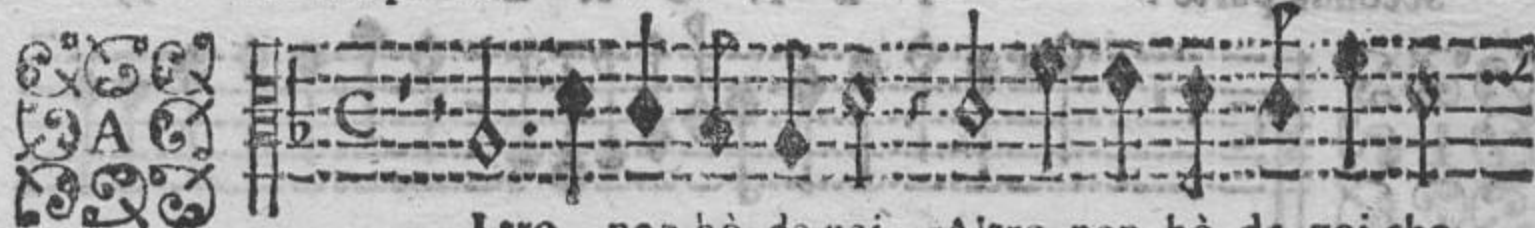 A
Ltro non hò da voi A'tro non hò da voi che